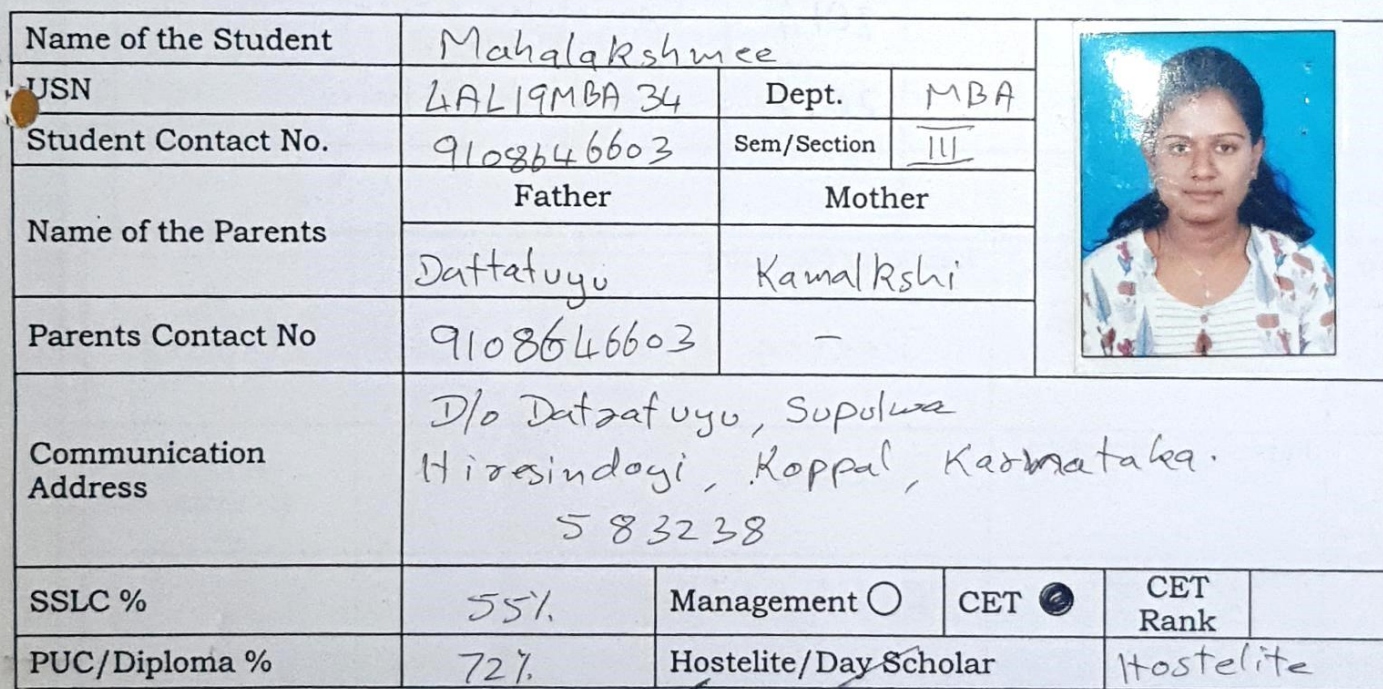 Name of the Student Mahalakshmee
USN 4AL19MBA34 Dept. MBA
Student Contact No. 9108646603 Sem/Section III
Name of the Parents
Father Mother
Dattatuyu Kamalkshi
Parents Contact No 9108646603 -
Communication
Address
D/o Datzatuyu, Supulwa
Hiresindogi, Koppal, Karnataka.
583238
SSLC % 55% Management CET CET
Rank
PUC/Diploma % 72% Hostelite/Day Scholar Hostelite